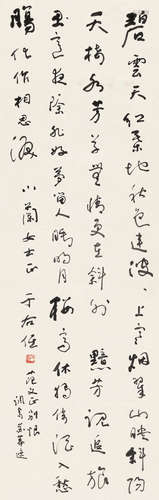 碧雲天紅葉地秋色連波、上寒煙翠山映斜陽
天接水芳草無情更在斜外黯芳魂追旅
思夜、除非好夢留人睡明月樓高休獨倚酒入愁
腸化作相思淚 小蘭女士正 于右任
范文正別恨
調寄蘇幕遮